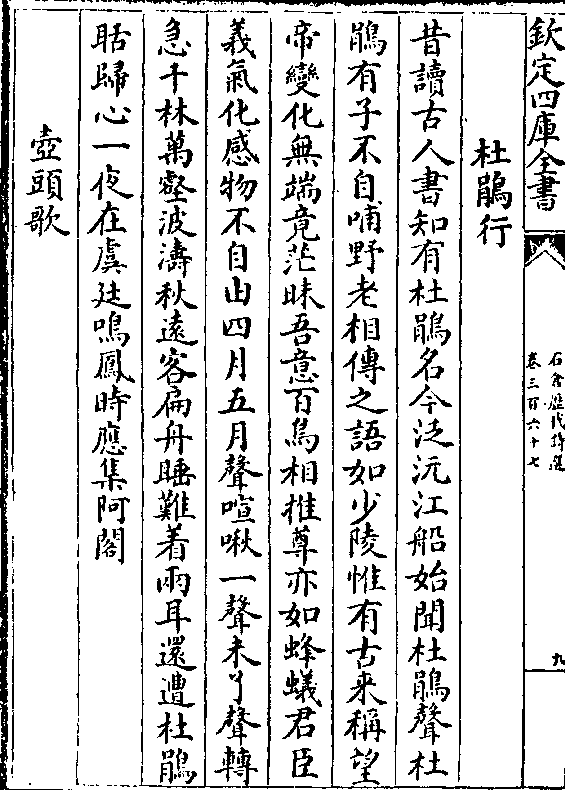 欽定四庫全書
石倉歷代詩選
卷三百六十七
九
杜鵑行
昔讀古人書知有杜鵑名今泛沅江船始聞杜鵑聲杜
鵑有子不自哺野老相傳之語如少陵惟有古来稱望
帝變化無端竟茫昧吾意百鳥相推尊亦如蜂蟻君臣
義氣化感物不自由四月五月聲喧啾一聲未了聲轉
急千林萬壑波濤秋遠客扁舟睡難着兩耳還遭杜鵑
聒歸心一夜在虞廷鳴鳳時應集阿閣
壺頭歌